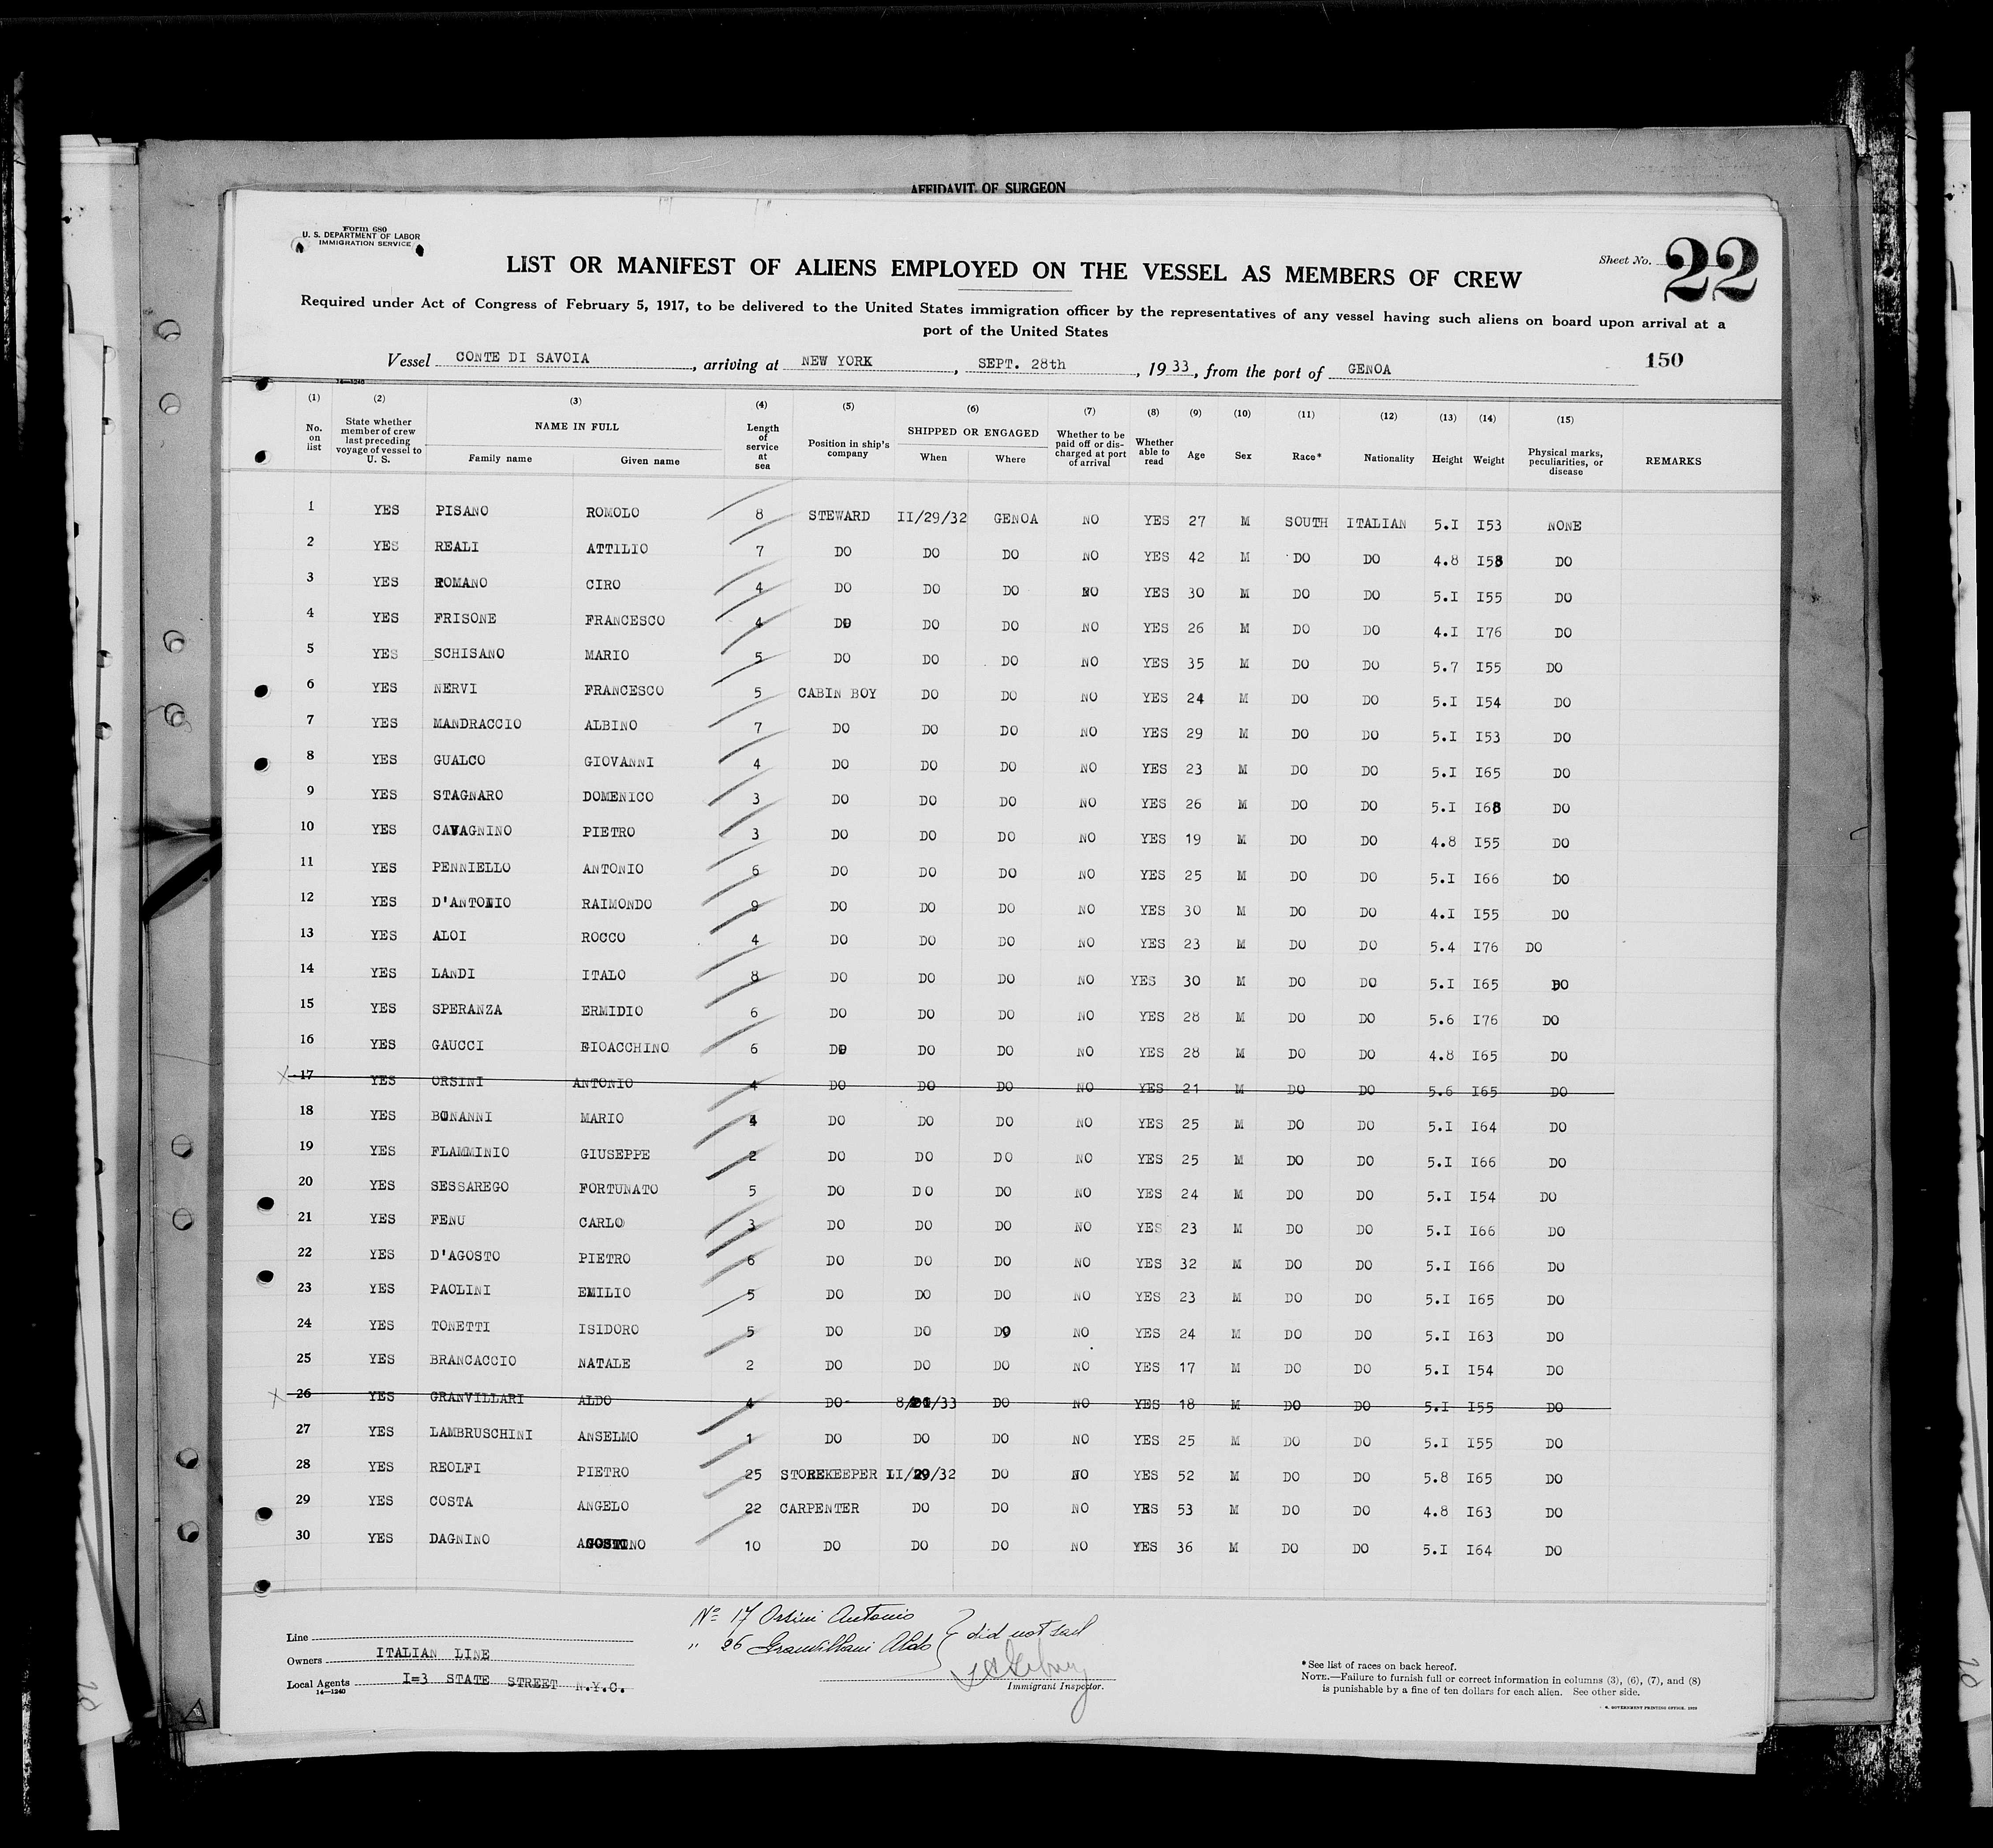 AFFIDAVIT OF SURGEON
Form 680
U. S. DEPARTMENT OF LABOR
IMMIGRATION SERVICE
Sheet No. 22
LIST OR MANIFEST OF ALIENS EMPLOYED ON THE VESSEL AS MEMBERS OF CREW
Required under Act of Congress of February 5, 1917, to be delivered to the United States immigration officer by the representatives of any vessel having such aliens on board upon arrival at a
port of the United States
Vessel CONTE DI SAVOIA, arriving at NEW YORK, SEPT. 28th, 1933, from the port of GENOA 150
14—1240
(1) (2) (3) (4) (5) (6) (7) (8) (9) (10) (11) (12) (13) (14) (15)
No. on list State whether member of crew last preceding voyage of vessel to U. S. NAME IN FULL Family name Given name Length of service at sea Position in ship's company SHIPPED OR ENGAGED When Where Whether to be paid off or discharged at port of arrival Whether able to read Age Sex Race* Nationality Height Weight Physical marks, peculiarities, or disease REMARKS
1 YES PISANO ROMOLO 8 STEWARD II/29/32 GENOA NO YES 27 M SOUTH ITALIAN 5.I I53 NONE
2 YES REALI ATTILIO 7 DO DO DO NO YES 42 M DO DO 4.8 I58 DO
3 YES ROMANO CIRO 4 DO DO DO NO YES 30 M DO DO 5.I I55 DO
4 YES FRISONE FRANCESCO 4 DO DO DO NO YES 26 M DO DO 4.I I76 DO
5 YES SCHISANO MARIO 5 DO DO DO NO YES 35 M DO DO 5.7 I55 DO
6 YES NERVI FRANCESCO 5 CABIN BOY DO DO NO YES 24 M DO DO 5.I I54 DO
7 YES MANDRACCIO ALBINO 7 DO DO DO NO YES 29 M DO DO 5.I I53 DO
8 YES GUALCO GIOVANNI 4 DO DO DO NO YES 23 M DO DO 5.I I65 DO
9 YES STAGNARO DOMENICO 3 DO DO DO NO YES 26 M DO DO 5.I I68 DO
10 YES CAVAGNINO PIETRO 3 DO DO DO NO YES 19 M DO DO 4.8 I55 DO
11 YES PENNIELLO ANTONIO 6 DO DO DO NO YES 25 M DO DO 5.I I66 DO
12 YES D'ANTONIO RAIMONDO 9 DO DO DO NO YES 30 M DO DO 4.I I55 DO
13 YES ALOI ROCCO 4 DO DO DO NO YES 23 M DO DO 5.4 I76 DO
14 YES LANDI ITALO 8 DO DO DO NO YES 30 M DO DO 5.I I65 DO
15 YES SPERANZA ERMIDIO 6 DO DO DO NO YES 28 M DO DO 5.6 I76 DO
16 YES GAUCCI GIOACCHINO 6 DO DO DO NO YES 28 M DO DO 4.8 I65 DO
X 17 YES ORSINI ANTONIO 4 DO DO DO NO YES 21 M DO DO 5.6 I65 DO
18 YES BONANNI MARIO 4 DO DO DO NO YES 25 M DO DO 5.I I64 DO
19 YES FLAMMINIO GIUSEPPE 2 DO DO DO NO YES 25 M DO DO 5.I I66 DO
20 YES SESSAREGO FORTUNATO 5 DO DO DO NO YES 24 M DO DO 5.I I54 DO
21 YES FENU CARLO 3 DO DO DO NO YES 23 M DO DO 5.I I66 DO
22 YES D'AGOSTO PIETRO 6 DO DO DO NO YES 32 M DO DO 5.I I66 DO
23 YES PAOLINI EMILIO 5 DO DO DO NO YES 23 M DO DO 5.I I65 DO
24 YES TONETTI ISIDORO 5 DO DO DO NO YES 24 M DO DO 5.I I63 DO
25 YES BRANCACCIO NATALE 2 DO DO DO NO YES 17 M DO DO 5.I I54 DO
X 26 YES GRANVILLARI ALDO 4 DO DO NO YES 18 M DO DO 5.I I55 DO
27 YES LAMBRUSCHINI ANSELMO 1 DO DO DO NO YES 25 M DO DO 5.I I55 DO
28 YES REOLFI PIETRO 25 STOREKEEPER II/29/32 DO NO YES 52 M DO DO 5.8 I65 DO
29 YES COSTA ANGELO 22 CARPENTER DO DO NO YES 53 M DO DO 4.8 I63 DO
30 YES DAGNINO AGOSTINO 10 DO DO DO NO YES 36 M DO DO 5.I I64 DO
Nº 17 Orsini Antonio
" 26 Granvillari Aldo } did not sail
Line
Owners ITALIAN LINE
Local Agents I=3 STATE STREET N.Y.C.
14—1240
Immigrant Inspector.
*See list of races on back hereof.
NOTE.—Failure to furnish full or correct information in columns (3), (6), (7), and (8)
is punishable by a fine of ten dollars for each alien. See other side.